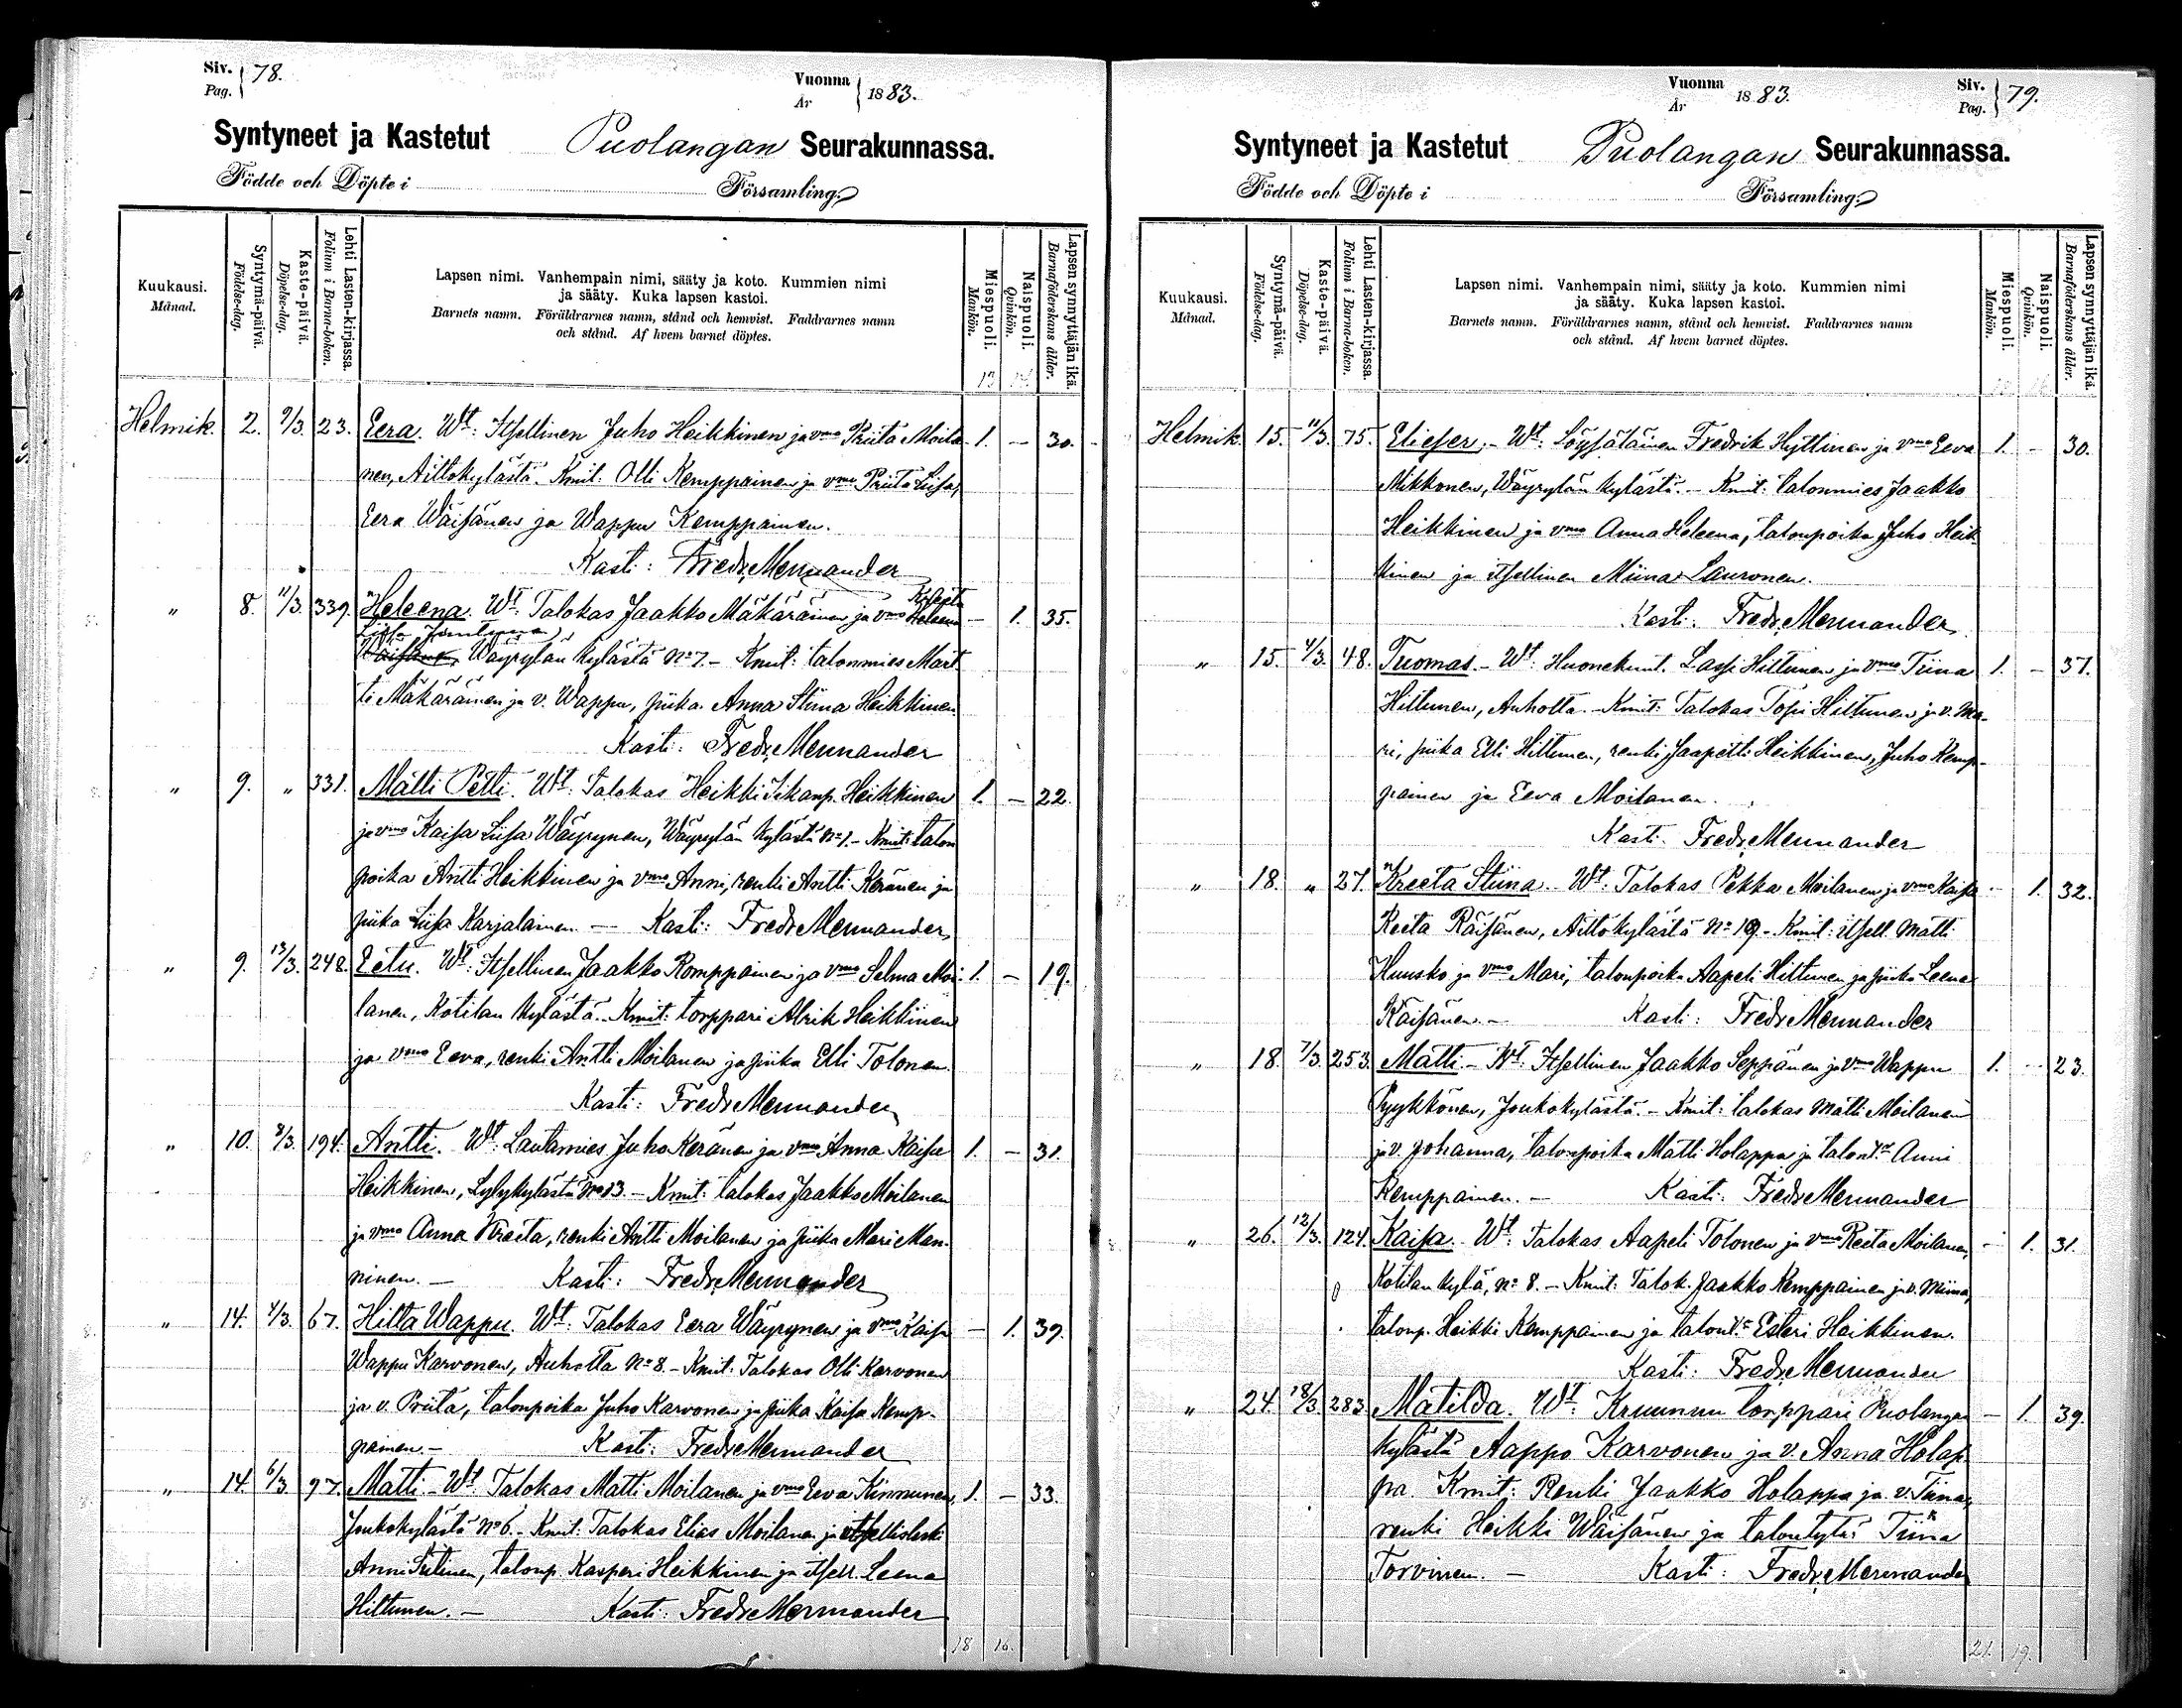 Siv. Pag. 78.
Vuonna År 1883.
Syntyneet ja Kastetut Puolangan Seurakunnassa.
Födde och Döpte i Församling.
Kuukausi. Månad.
Syntymä-päivä. Födelse-dag.
Kaste-päivä. Döpelse-dag.
Lehti Lasten-kirjassa. Folium i Barna-boken.
Lapsen nimi. Vanhempain nimi, sääty ja koto. Kummien nimi
ja sääty. Kuka lapsen kastoi.
Barnets namn. Föräldrarnes namn, stånd och hemvist. Faddrarnes namn
och stånd. Af hvem barnet döptes.
Miespuoli. Mankön.
Naispuoli. Qvinkön.
Lapsen synnyttäjän ikä. Barnaföderskans ålder.
Helmik. 2. 9/3. 23. Eera. Wt: Itsellinen Juho Heikkinen ja vmo Priita Moila- 1. — 30.
nen, Aittokylästä. Kmit: Olli Kemppainen ja vmo Priita Liisa,
Eera Wäisänen ja Wappu Kemppainen.
Kasti: Fredr. Mennander
" 8. 11/3. 339. Heleena. Wt: Talokas Jaakko Mäkäräinen ja vmo Heleena — 1. 35.
Wäisänen, Wäyrylän kylästä No 7. – Kmit: talonmies Mart-
ti Mäkäräinen ja v. Wappu, piika Anna Stiina Heikkinen.
Kasti: Fredr. Mennander
" 9. " 331. Matti Petti. Wt: Talokas Heikki Iikanp. Heikkinen 1. — 22.
ja vmo Kaisa Liisa Wäyrynen, Wäyrylän kylästä No 1. – Kmit: talon
poika Antti Heikkinen ja vmo Anni, renki Antti Keränen ja
piika Liisa Karjalainen — Kasti: Fredr. Mennander
" 9. 13/3. 248. Eetu. Wt: Itsellinen Jaakko Komppainen ja vmo Selma Moi- 1. — 19.
lanen, Kotilan kylästä. Kmit: torppari Alrik Heikkinen
ja vmo Eeva, renki Antti Moilanen ja piika Elli Tolonen.
Kasti: Fredr. Mennander
" 10. 8/3. 194. Antti. Wt: Lautamies Juho Keränen ja vmo Anna Kaisa 1. — 31.
Heikkinen, Lylykylästä No 13. – Kmit: talokas Jaakko Moilanen
ja vmo Anna Kreeta, renki Antti Moilanen ja piika Mari Man-
ninen. — Kasti: Fredr. Mennander
" 14. 4/3. 67. Hilta Wappu. Wt: Talokas Eera Wäyrynen ja vmo Kaisa — 1. 39.
Wappu Karvonen, Auhotta No 8. – Kmit: Talokas Olli Karvonen
ja v. Priita, talonpoika Juho Karvonen ja piika Kaisa Kemp-
painen. — Kasti: Fredr. Mennander
" 14. 6/3. 97. Matti. – Wt: Talokas Matti Moilanen ja vmo Eeva Kinnunen, 1. — 33.
Joukokylästä No 6. – Kmit: Talokas Elias Moilanen ja itsellisleski
Anni Sutinen, talonp. Kasperi Heikkinen ja itsell. Leena
Hiltunen. — Kasti: Fredr. Mennander
18 16.
Vuonna År 1883.
Siv. Pag. 79.
Syntyneet ja Kastetut Puolangan Seurakunnassa.
Födde och Döpte i Församling.
Kuukausi. Månad.
Syntymä-päivä. Födelse-dag.
Kaste-päivä. Döpelse-dag.
Lehti Lasten-kirjassa. Folium i Barna-boken.
Lapsen nimi. Vanhempain nimi, sääty ja koto. Kummien nimi
ja sääty. Kuka lapsen kastoi.
Barnets namn. Föräldrarnes namn, stånd och hemvist. Faddrarnes namn
och stånd. Af hvem barnet döptes.
Miespuoli. Mankön.
Naispuoli. Qvinkön.
Lapsen synnyttäjän ikä. Barnaföderskans ålder.
Helmik. 15. 11/3. 75. Elieser. – Wt: Löysäläinen Fredrik Hyttinen ja vmo Eeva 1. — 30.
Mikkonen, Wäyrylän kylästä. – Kmit: talonmies Jaakko
Heikkinen ja vmo Anna Heleena, talonpoika Juho Heik-
kinen ja itsellinen Miina Lauronen.
Kasti: Fredr. Mennander
" 15. 4/3. 48. Tuomas. – Wt: Huonekunt. Lassi Hiltunen ja vmo Tiina 1. — 37.
Hiltunen, Auholta. – Kmit: Talokas Topi Hiltunen ja v. Ma-
ri, piika Elli Hiltunen, renki Jaapetti Heikkinen, Juho Kemp-
painen ja Eeva Moilanen.
Kasti: Fredr. Mennander
" 18. " 27. Kreeta Stiina. – Wt: Talokas Pekka Moilanen ja vmo Kaisa — 1. 32.
Reeta Räisänen, Aittokylästä No 19. – Kmit: itsell. Matti
Huusko ja vmo Mari, talonpoika Aapeli Hiltunen ja piika Leena
Räisänen. – Kasti: Fredr. Mennander
" 18. 7/3. 253. Matti. – Wt: Itsellinen Jaakko Seppänen ja vmo Wappu 1. — 23.
Pyykkönen, Joukokylästä. – Kmit: talokas Matti Moilanen
ja v. Johanna, talonpoika Matti Holappa ja talont:r Anni
Kemppainen. – Kasti: Fredr. Mennander
" 26. 12/3. 124. Kaisa. Wt: Talokas Aapeli Tolonen ja vmo Reeta Moilanen, — 1. 31.
Kotilan kylä, No 8. – Kmit: Talok. Jaakko Kemppainen ja v. Miina,
talonp. Heikki Kemppainen ja talont:r Esteri Heikkinen.
Kasti: Fredr. Mennander
" 24. 18/3. 283. Matilda. Wt: Kruunun torppari Puolangan — 1. 39.
kylästä Aappo Karvonen ja v. Anna Holap-
pa. Kmit: Renki Jaakko Holappa ja v. Tiina,
renki Heikki Wäisänen ja talontytär Tiina
Torvinen. – Kasti: Fredr. Mennander
21. 19.